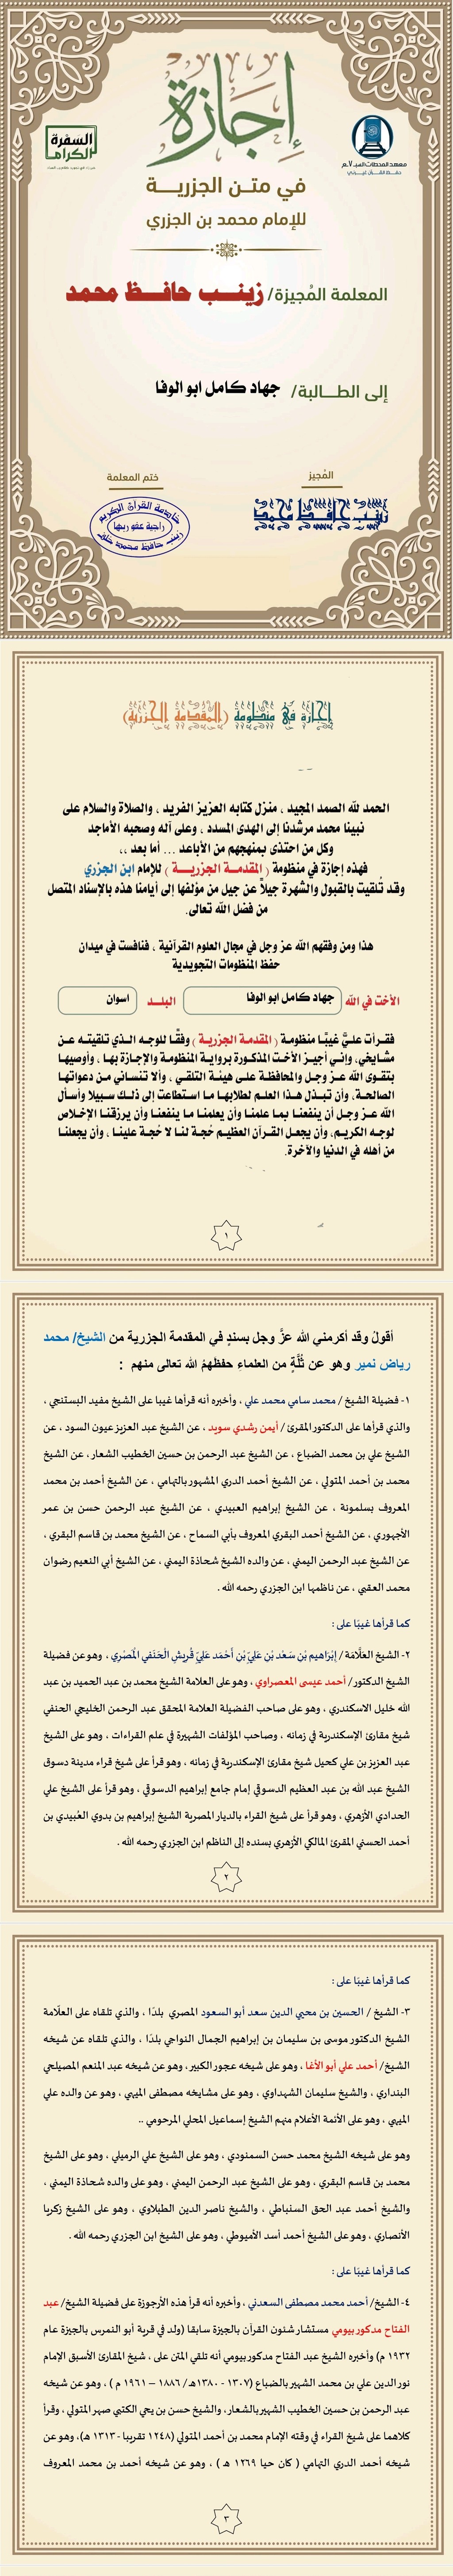 إجازة
السفرة
الكرام
في متن الجزرية
للإمام محمد بن الجزري
المعلمة المُجيزة/ زينب حافظ محمد
إلى الطالبة/ جهاد كامل ابو الوفا
المُجيز
ختم المعلمة
زينب حافظ محمد
خادمة القرآن الكريم
راجية عفو ربها
زينب حافظ محمد
إجازة في منظومة (المقدمة الجزرية)
الحمد لله الصمد المجيد ، منزل كتابه العزيز الفريد ، والصلاة والسلام على
نبينا محمد مرشدنا إلى الهدى المسدد ، وعلى آله وصحبه الأماجد
وكل من احتذى بمنهجهم من الأباعد ... أما بعد ،،
فهذه إجازة في منظومة ( المقدمة الجزرية ) للإمام ابن الجزري
وقد تُلقيت بالقبول والشهرة جيلاً عن جيل من مؤلفها إلى أيامنا هذه بالإسناد المتصل
من فضل الله تعالى.
هذا ومن وفقهم الله عز وجل في مجال العلوم القرآنية ، فنافست في ميدان
حفظ المنظومات التجويدية
الأخت في الله جهاد كامل ابو الوفا البلد اسوان
فقرأت عليَّ غيبًا منظومة ( المقدمة الجزرية ) وفقًا للوجه الذي تلقيته عن
مشايخي، وإني أجيز الأخت المذكورة برواية المنظومة والإجازة بها ، وأوصيها
بتقوى الله عز وجل والمحافظة على هيئة التلقي ، وألا تنساني من دعواتها
الصالحة، وأن تبذل هذا العلم لطلابها ما استطاعت إلى ذلك سبيلا وأسأل
الله عز وجل أن ينفعنا بما علمنا وأن يعلمنا ما ينفعنا وأن يرزقنا الإخلاص
لوجهه الكريم، وأن يجعل القرآن العظيم حُجة لنا لا حُجة علينا ، وأن يجعلنا
من أهله في الدنيا والآخرة.
١
أقولُ وقد أكرمني الله عزَّ وجل بسندٍ في المقدمة الجزرية من الشيخ/ محمد
رياض نمير وهو عن ثُلَّةٍ من العلماءِ حفظَهُمُ الله تعالى منهم :
١- فضيلة الشيخ / محمد سامي محمد علي ، وأخبره أنه قرأها غيبا على الشيخ مفيد البستنجي ،
والذي قرأها على الدكتور المقرئ / أيمن رشدي سويد ، عن الشيخ عبد العزيز عيون السود ، عن
الشيخ علي بن محمد الضباع ، عن الشيخ عبد الرحمن بن حسين الخطيب الشعار ، عن الشيخ
محمد بن أحمد المتولي ، عن الشيخ أحمد الدري المشهور بالتهامي ، عن الشيخ أحمد بن محمد
المعروف بسلمونة ، عن الشيخ إبراهيم العبيدي ، عن الشيخ عبد الرحمن حسن بن عمر
الأجهوري ، عن الشيخ أحمد البقري المعروف بأبي السماح ، عن الشيخ محمد بن قاسم البقري ،
عن الشيخ عبد الرحمن اليمني ، عن والده الشيخ شحاذة اليمني ، عن الشيخ أبي النعيم رضوان
محمد العقبي ، عن ناظمها ابن الجزري رحمه الله .
كما قرأها غيبًا على :
٢- الشيخ العَلَّامَة / إِبْرَاهيم بْن سَعْد بْن عَلِيّ بْن أَحْمَد عَلِيّ قُريش الْحَنَفي الْمَصْري ، وهو عن فضيلة
الشيخ الدكتور/ أحمد عيسى المعصراوي ، وهو على العلامة الشيخ محمد بن عبد الحميد بن عبد
الله خليل الاسكندري ، وهو على صاحب الفضيلة العلامة المحقق عبد الرحمن الخليجي الحنفي
شيخ مقارئ الإسكندرية في زمانه ، وصاحب المؤلفات الشهيرة في علم القراءات ، وهو على الشيخ
عبد العزيز بن علي كحيل شيخ مقارئ الإسكندرية في زمانه ، وهو قرأ على شيخ قراء مدينة دسوق
الشيخ عبد الله بن عبد العظيم الدسوقي إمام جامع إبراهيم الدسوقي ، وهو قرأ على الشيخ علي
الحدادي الأزهري ، وهو قرأ على شيخ القراء بالديار المصرية الشيخ إبراهيم بن بدوي العُبيدي بن
أحمد الحسني المقرئ المالكي الأزهري بسنده إلى الناظم ابن الجزري رحمه الله .
٢
كما قرأها غيبًا على :
٣- الشيخ / الحسين بن محيي الدين سعد أبو السعود المصري بلدًا ، والذي تلقاه على العلّامة
الشيخ الدكتور موسى بن سليمان بن إبراهيم الجمال النواجي بلدًا ، والذي تلقاه عن شيخه
الشيخ/ أحمد علي أبو الأغا ، وهو على شيخه عجور الكبير، وهو عن شيخه عبد المنعم المصيلحي
البنداري ، والشيخ سليمان الشهداوي ، وهو على مشايخه مصطفى الميهي ، وهو عن والده علي
الميهي ، وهو على الأئمة الأعلام منهم الشيخ إسماعيل المحلي المرحومي ..
وهو على شيخه الشيخ محمد حسن السمنودي ، وهو على الشيخ علي الرميلي ، وهو على الشيخ
محمد بن قاسم البقري ، وهو على الشيخ عبد الرحمن اليمني ، وهو على والده شحاذة اليمني ،
والشيخ أحمد عبد الحق السنباطي ، والشيخ ناصر الدين الطبلاوي ، وهو على الشيخ زكريا
الأنصاري ، وهو على الشيخ أحمد أسد الأميوطي ، وهو على الشيخ ابن الجزري رحمه الله .
كما قرأها غيبًا على :
٤- الشيخ/ أحمد محمد مصطفى السعدني ، وأخبره أنه قرأ هذه الأرجوزة على فضيلة الشيخ/ عبد
الفتاح مدكور بيومي مستشار شئون القرآن بالجيزة سابقا (ولد في قرية أبو النمرس بالجيزة عام
١٩٣٢ م) وأخبره الشيخ عبد الفتاح مدكور بيومي أنه تلقي المتن على ، شيخ المقارئ الأسبق الإمام
نور الدين علي بن محمد الشهير بالضباع (١٣٠٧ - ١٣٨٠هـ/ ١٨٨٦ – ١٩٦١ م ) ، وهو عن شيخه
عبد الرحمن بن حسين الخطيب الشهير بالشعار، والشيخ حسن بن يحي الكتبي صهر المتولي ، وقرأ
كلاهما على شيخ القراء في وقته الإمام محمد بن أحمد المتولي (١٢٤٨ تقريبا - ١٣١٣ هـ)، وهو عن
شيخه أحمد الدري التهامي ( كان حيا ١٢٦٩ هـ ) ، وهو عن شيخه أحمد بن محمد المعروف
٣